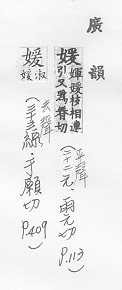 廣韻
媛 嬋媛枝相連引又爲眷切
平聲
(二十二元、雨元切 P.113)
媛 淑媛
去聲
(三十三線、于願切 P.409)